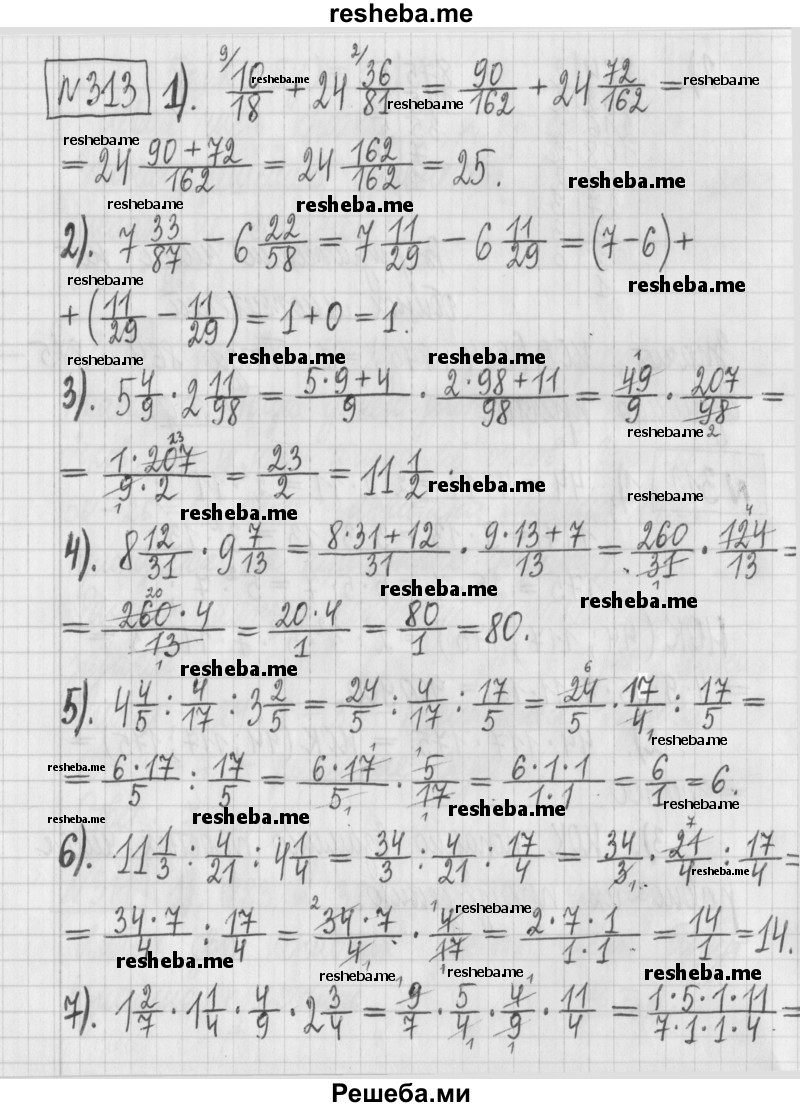 resheba.me
№313 1). ⁹/10/18 + 24 ²/36/81 = 90/162 + 24 72/162 =
= 24 (90+72)/162 = 24 162/162 = 25.
2). 7 33/87 − 6 22/58 = 7 11/29 − 6 11/29 = (7−6)+
+ (11/29 − 11/29) = 1+0 = 1.
3). 5 4/9 · 2 11/98 = (5·9+4)/9 · (2·98+11)/98 = 49/9 · 207/98 =
= (1·207)/(9·2) = 23/2 = 11 1/2.
4). 8 12/31 · 9 7/13 = (8·31+12)/31 · (9·13+7)/13 = 260/31 · 124/13 =
= (260·4)/13 = (20·4)/1 = 80/1 = 80.
5). 4 4/5 : 4/17 : 3 2/5 = 24/5 : 4/17 : 17/5 = 24/5 · 17/4 : 17/5 =
= (6·17)/5 : 17/5 = (6·17)/5 · 5/17 = (6·1·1)/(1·1) = 6/1 = 6.
6). 11 1/3 : 4/21 : 4 1/4 = 34/3 : 4/21 : 17/4 = 34/3 · 21/4 : 17/4 =
= (34·7)/4 : 17/4 = (34·7)/4 · 4/17 = (2·7·1)/(1·1) = 14/1 = 14.
7). 1 2/7 · 1 1/4 · 4/9 · 2 3/4 = 9/7 · 5/4 · 4/9 · 11/4 = (1·5·1·11)/(7·1·1·4) =
Решеба.ми